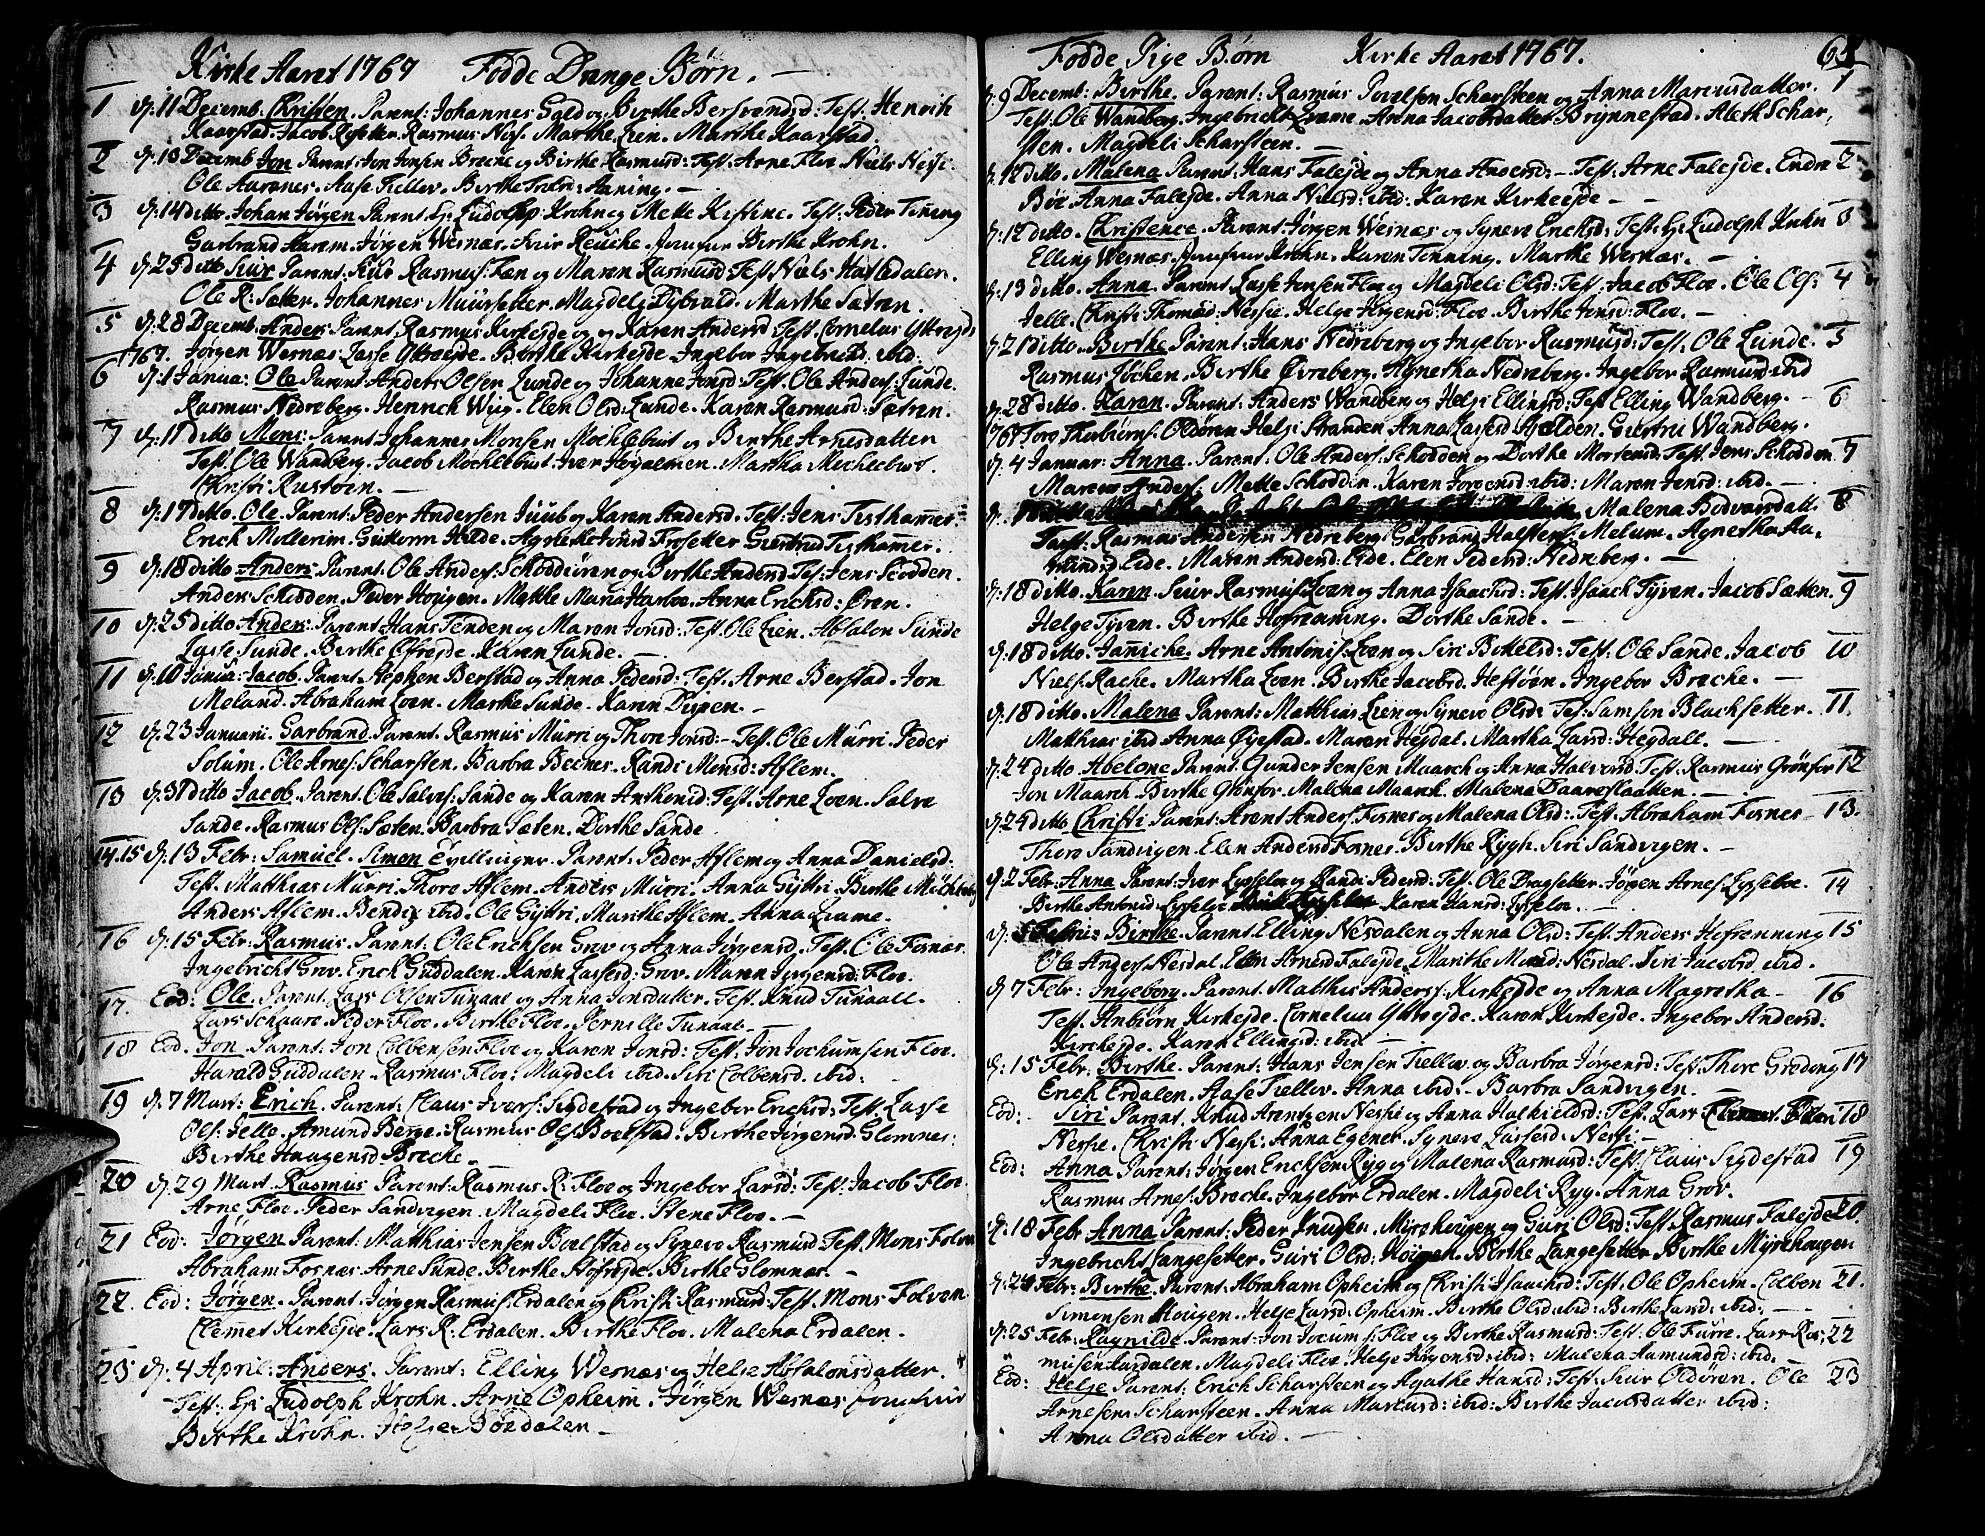 Kirke Aaret 1767 Fødde Drenge Børn.
1 d. 11 Decemb. Christen. Parent: Johannes Sald og Birthe Bersvensd: Test: Henrich
Kaarstad. Jacob Rysetter. Rasmus Nos. Marthe Lien. Marthe Kaarstad.
2 d. 13 Decemb Jon Parent: Jon Jonsen Breche og Birthe Rasmusd: Test: Arne Floe Niels Nesse
Ole Aarenes. Aase Tiellev. Birthe Aaning.
3 d. 14 ditto Johan Jørgen Parent: Hr Ludolph Krohn og Mette Kistine. Test: Peder Tenning
Garbrand Harem. Jørgen Wesnæs. Jomfrue Birthe Krohn.
4 d. 25 ditto Siur Parent: Siur Rasmus: Tæn og Maren Rasmusd: Test: Niels Hafledalen.
Ole R: Sætter. Johannes Muursetter. Magdeli Dybvald. Marthe Sætren.
5 d. 28 Decemb: Anders Parent: Rasmus Kirkejde og Karen Andersd Test: Cornelius Yttrejde
1767. Jørgen Wesnæs. Lasse Yttrejde. Birthe Kirkejde. Ingebor Ingebricd: ibid:
6 d. 1 Janua: Ole Parent: Anders Olsen Lunde og Johanne Jonsd: Test: Ole Anders: Lunde.
Rasmus Nedreberg. Henrich Wiig. Elen Olsd: Lunde. Karen Rasmusd: Sætren.
7 d. 11 ditto Mons: Parent Johannes Monsen Mochlebust og Birthe Arnesdatter
Test: Ole Wandberg. Jacob Mochlebust. Iver Høyalmen. Martha Mechlebust.
Christi Rustøen.
8 d. 17 ditto. Ole. Parent: Peder Andersen Juub og Karen Andersd. Test: Jens Tisthammer
Erich Mollerim. Guttorm Hilde. Giertrud Tisthammer.
9 d. 18 ditto Anders Parent: Ole Anders: Schoddüren og Birthe Andersd Test: Jens Scodden.
Anders Schodden. Peder Hougen. Mette Maria Harboe. Anna Erichsd: Øren.
10 d. 25 ditto Anders: Parent: Hans Tenden og Maren Jonsd: Test: Ole Lien. Absalon Sunde
Lasse Sunde. Birthe Ofrejde. Karen Lunde.
11 d. 10 Janua: Jacob. Parent: Stephen Berstad og Anna Pedersd: Test: Arne Berstad. Jon
Meland. Abraham Loen. Marthe Sunde. Karen Dispen.
12 d. 23 Januarii. Garbrand. Parent. Rasmus Murri og Thore Jonsd: Test: Ole Murri. Peder
Solum. Ole Arnes: Scharsten. Barbra Beenes. Randi Monsd: Aflem.
13 d. 31 ditto Jacob. Parent. Ole Salves: Sande og Karen Anthonid: Test: Arne Loen. Salve
Sande. Rasmus Ols: Sæten. Barbra Sæten. Dorthe Sande
14.15 d. 13 Febr: Samuel. Simon Tvillinger. Parent: Peder Aflem og Anna Danielsd:
Test: Matthias Murri. Thore Aflem. Anders Murri. Anna Gyttri. Birthe
Anders Aflem. Bendix ibid. Ole Gyttri. Marithe Aflem. Anna Qvame.
16 d. 15 Febr: Rasmus. Parent: Ole Erichsen Grov og Anna Jørgensd. Test: Ole Fosnæs.
Ingebricht Grov. Erich Guddalen. Karen Lassesd: Grov. Maren Jørgensd: Floe.
17. Eod: Ole. Parent. Lars Olsen Tunaal og Anna Jonsdatter. Test: Knud Tunaall.
Lars Schaare. Peder Floe. Birthe Floe. Pernille Tunaal.
18 Eod. Jon Parent: Jon Colbensen Floe og Karen Jonsd: Test: Jon Jochumsen Floe.
Harald Guddalen. Rasmus Floe. Magdeli ibid. Siri Colbensd. ibid:
19 d. 7 Mart: Erich. Parent: Claus Ivers: Sigdestad og Ingebor Erichsd: Test: Lasse
Ols: Jelle. Amund Berge. Rasmus Ols: Boelstad. Birthe Jørgensd: Glomnes:
Birthe Haagensd Breche.
20 d. 29 Mart. Rasmus Parent: Rasmus R: Floe og Ingebor Larsd: Test: Jacob Floe.
Arne Floe. Peder Sandvigen. Magdeli Floe. Stene Floe.
21 Eod: Jørgen Parent: Matthias Jensen Boelstad og Synneve Rasmusd Test: Mons Folven
Abraham Fosnæs. Arne Sunde. Birthe Hofrejde. Birthe Glomnæs.
22. Eod: Jørgen. Parent: Jørgen Rasmus: Erdalen og Christi Rasmusd: Test: Mons Folven
Clemmet Kirkejde. Lars R: Erdalen. Birthe Floe. Malena Erdalen.
23 d. 4 April: Anders. Parent: Elling Wesnæs og Helge Absalonsdatter.
Test: Hr Ludolph Krohn. Arne Opheim. Jørgen Wesnæs Jomfrue
Birthe Krohn. Helge Bøedalen.
Fødde Pige Børn Kirke Aaret 1767.
d. 9 Decemb: Birthe. Parent: Rasmus Povelsen Scharsteen og Anna Marcusdatter. 1
Test. Ole Wandberg. Ingebricht Qvame. Anna Jacobsdatter Brynnestad. Aleth Schar,
sten. Magdeli Scharsteen.
d. 12 ditto. Malena Parent: Hans Falejde og Anna Andersd: Test: Arne Falejde. Endre 2
Bøe. Anna Falejde. Anna Nielsd: ibid: Karen Kirkeejde
d. 12 ditto. Christence. Parent: Jørgen Wesnæs og Synneve Erichsd: Test: Hr Ludolph Krohn 3
Elling Wesnæs. Jomfrue Krohn. Karen Tenning. Marthe Wesnæs.
d. 13 ditto. Anna. Parent: Lasse Jensen Floe og Magdeli Olsd: Test: Jacob Floe. Ole Ols: 4
Jelle. Christi Thomasd: Nessie. Helge Jørgensd: Floe. Birthe Jonsd: Floe.
d. 21 ditto. Birthe Parent: Hans Nedreberg og Ingebor Rasmusd: Test: Ole Lunde. 5
Rasmus Løchen. Birthe Øvreberg. Agnetha Nedreberg. Ingebor Rasmusd ibid
d. 28 ditto. Karen. Parent: Anders Wandberg og Helge Ellingsd: Test Elling Wandberg. 6
1767 Tore Thorbiørns: Oldøren Helge Stranden Anna Lassesd Hielden. Giertru Wandberg.
d. 4 Januar: Anna. Parent: Ole Anders: Schodden og Dorthe Mortensd: Test: Jens Schodden 7
Marcus Anders: Mette Schodden. Karen Jørgensd: ibid: Maren Jensd: ibid.
d. Malena Bodvarsdatt. 8
Test: Rasmus Andersen Nedreberg. Garbrand Halstens: Melum. Agnetha Aa,
mundsd Eide. Maren Andersd: Eide. Elen Pedersd: Nedreberg.
d. 18 ditto. Karen. Siur Rasmus: Loen og Anna Isaachsd: Test: Isaach Tyven. Jacob Sætten. 9
Helge Tyven. Birthe Hofrenning. Dorthe Sande.
d. 18 ditto. Janniche. Arne Antonis: Loen og Siri Botelsd: Test: Ole Sande. Jacob 10
Niels: Rache. Martha Loen. Birthe Jacobsd. Hestøen. Ingebor Breche.
d. 18 ditto. Malena Parent: Matthias Lien og Synneve Olsd: Test: Samson Blachsetter. 11.
Matthias ibid Anna Øyestad. Maren Hegdal. Martha Larsd: Hegdall.
d. 24 ditto Abelone Parent Gunder Jensen Maarch og Anna Halvorsd. Test: Rasmus Grønfor 12
Jon Maarch. Birthe Grønfor. Malena Maarch. Malena Baareslaatten.
d. 24 ditto Christi Parent: Arent Anders: Fosnes og Malena Olsd: Test: Abraham Fosnes 13.
Thore Sandvigen. Elen Andersd Fosnes. Birthe Rygh. Siri Sandvigen.
d. 2 Febr: Anna Parent: Iver Lysseloe og Randi Pedersd: Test: Ole Dragsetter. Jørgen Arnes: Lysseloe. 14
Birthe Antonisd: Lysseloe Karen Hansd: Lysseloe.
d. 5 Febri: Birthe. Parent: Elling Nesdalen og Anna Olsd: Test: Anders Hofrenning 15
Ole Anders: Nesdal. Elen Arnesd Falejde. Marithe Nesdal. Siri Jacobsd ibid.
d. 7 Febr: Ingeborg. Parent: Matthis Anders: Kirkejde og Anna Magretha 16
Test: Anbiørn Kirkejde. Cornelius Yttrejde. Karen Kirkejde. Ingebor Andersd:
Kirkejde. Karen Ellingsd: ibid
d. 15 Febr: Birthe. Parent: Hans Jensen Tiellev og Barbra Jørgensd: Test: Thore Grodong 17
Erich Erdalen. Aase Tiellev. Anna ibid. Barbra Sandvigen.
Eod: Siri Parent: Knud Arentsen Nesse og Anna Test: Lars 18
Nesse. Christi Nesse. Anna Egenes. Synneve Lassesd: Nessi.
Eod: Anna Parent: Jørgen Erichsen Ryg og Malena Rasmusd: Test: Claus Sigdestad 19
Rasmus Arnes: Breche. Ingebor Erdalen. Magdeli Ryg. Anna Grov.
d. 18 Febr Anna Parent: Peder Knudsen Myrehougen og Guri Olsd: Test: Rasmus Falejde 20.
Ingebricht Langesetter. Guri Olsd: Hougen Birthe Langesetter Birthe Myrehougen
d. 24 Febr: Birthe. Parent: Abraham Opheim og Christi Isaachsd: Test: Ole Opheim. Colben 21.
Simonsen Hougen. Helge Larsd: Opheim. Birthe Olsd: ibid: Birthe Larsd: ibid:
d. 25 Febr: Ragnilde. Parent: Jon Jocum s: Floe og Birthe Rasmusd: Test: Ole Furre. Lars Ras, 22
musen Aardalen. Magdeli Floe. Helge Jørgensd: ibid: Malena Aamundsd: ibid.
Eod: Helge Parent: Erich Scharsteen og Agathe Hansd: Test: Siur Oldøren. Ole 23
Arnesen Scharsteen. Anna Marcusd: ibid: Birthe Jacobsdatter ibid:
Anna Olsdatter ibid.